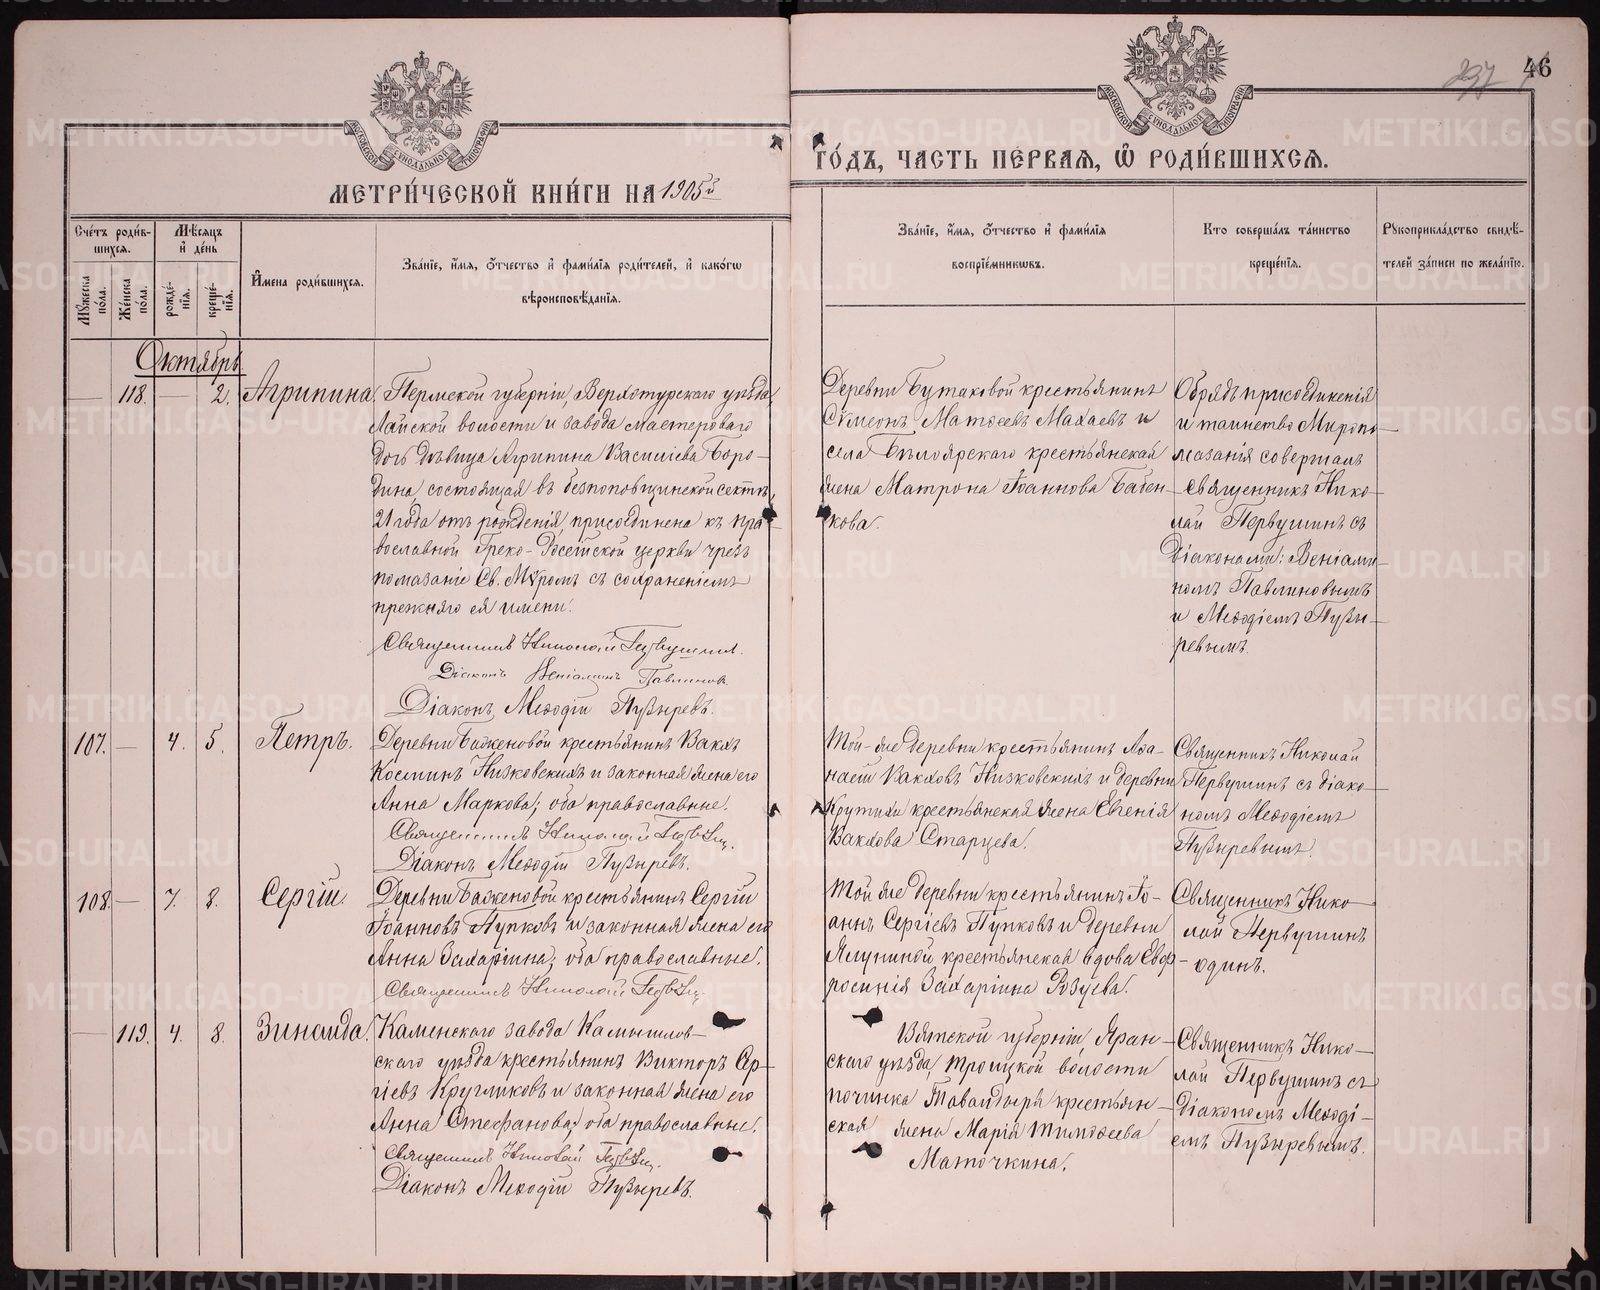 237 46
МОСКОВСКОЙ СѴНОДАЛЬНОЙ ТИПОГРАФІИ
МОСКОВСКОЙ СѴНОДАЛЬНОЙ ТИПОГРАФІИ
МЕТРИ́ЧЕСКОЙ КНИ́ГИ НА 1905й
ГО́ДЪ, ЧАСТЬ ПЕ́РВАЯ, Ѡ҆ РОДИ́ВШИХСЯ.
Сче́тъ роди́в-
шихся.
Мꙋжеска по́ла.
Же́нска по́ла.
Мѣ́сяцъ и҆ де́нь
рожде́-
нїя.
креще́-
нїя.
И҆мена роди́вшихся.
Зва́нїе, и҆́мя, ѻ҆́тчество и҆ фами́лїя роди́телей, и҆ како́гѡ
вѣроисповѣ́данїя.
Зва́нїе, и҆́мя, ѻ҆́тчество и҆ фами́лїя
воспрїе́мникѡвъ.
Кто соверша́лъ та́инство
креще́нїя.
Рꙋкоприкла́дство свидѣ́-
телей за́писи по жела́нїю.
Октябрь
— 118. — 2. Агрипина.
Пермской губерніи, Верхотурскаго уѣзда,
Лайской волости и завода мастероваго
дочь дѣвица Агрипина Василіева Боро-
дина, состоящая въ безпоповщинской сектѣ,
21 года отъ рожденія, присоединена къ пра-
вославной Греко-Россійской церкви чрезъ
помазаніе Св. Мѵромъ съ сохраненіемъ
прежняго ея имени.
Священникъ Николай Первушинъ.
Діаконъ Веніаминъ Павлиновъ.
Діаконъ Меѳодій Пузыревъ.
Деревни Бутаковой крестьянинъ
Сѵмеонъ Матѳеевъ Махаевъ и
села Бѣлоярскаго крестьянская
жена Матрона Іоаннова Бабен-
кова.
Обрядъ присоединенія
и таинство Миропо-
мазанія совершалъ
Священникъ Нико-
лай Первушинъ съ
Діаконами: Веніами-
номъ Павлиновымъ
и Меѳодіемъ Пузы-
ревымъ.
107. — 4. 5. Петръ.
Деревни Баженовой крестьянинъ Вакхъ
Косминъ Низковскихъ и законная жена его
Анна Маркова; оба православные.
Священникъ Николай Первуш.
Діаконъ Меѳодій Пузыревъ.
Той-же деревни крестьянинъ Аѳа-
насій Вакховъ Низковскихъ и деревни
Крутихи крестьянская жена Евгенія
Вакхова Старцева.
Священникъ Николай
Первушинъ съ діако-
номъ Меѳодіемъ
Пузыревымъ.
108. — 7. 8. Сергій.
Деревни Баженовой крестьянинъ Сергій
Іоанновъ Пупковъ и законная жена его
Анна Захаріина; оба православные.
Священникъ Николай Первуш.
Той же деревни крестьянинъ Іо-
аннъ Сергіевъ Пупковъ и деревни
Ялуниной крестьянская вдова Евф-
росинія Захаріина Розуева.
Священникъ Нико-
лай Первушинъ
одинъ.
— 119. 4. 8. Зинаида.
Каменскаго завода Камышлов-
скаго уѣзда крестьянинъ Викторъ Сер-
гіевъ Кругликовъ и законная жена его
Анна Стефанова; оба православные.
Священникъ Николай Первуш.
Діаконъ Меѳодій Пузыревъ.
Вятской губерніи, Яран-
скаго уѣзда, Троицкой волости
починка крестьян-
ская жена Марія Тимоѳеева
Маточкина.
Священникъ Нико-
лай Первушинъ съ
Діакономъ Меѳоді-
емъ Пузыревымъ.
METRIKI.GASO-URAL.RU